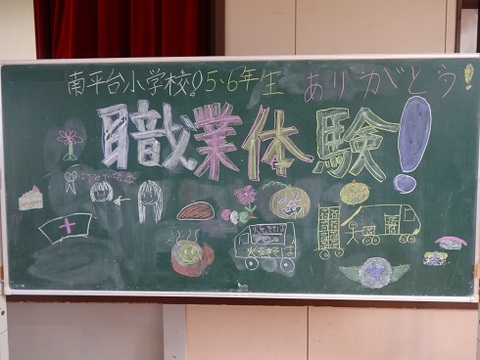 南平台小学校！5・6年生 ありがとう！
職業体験！